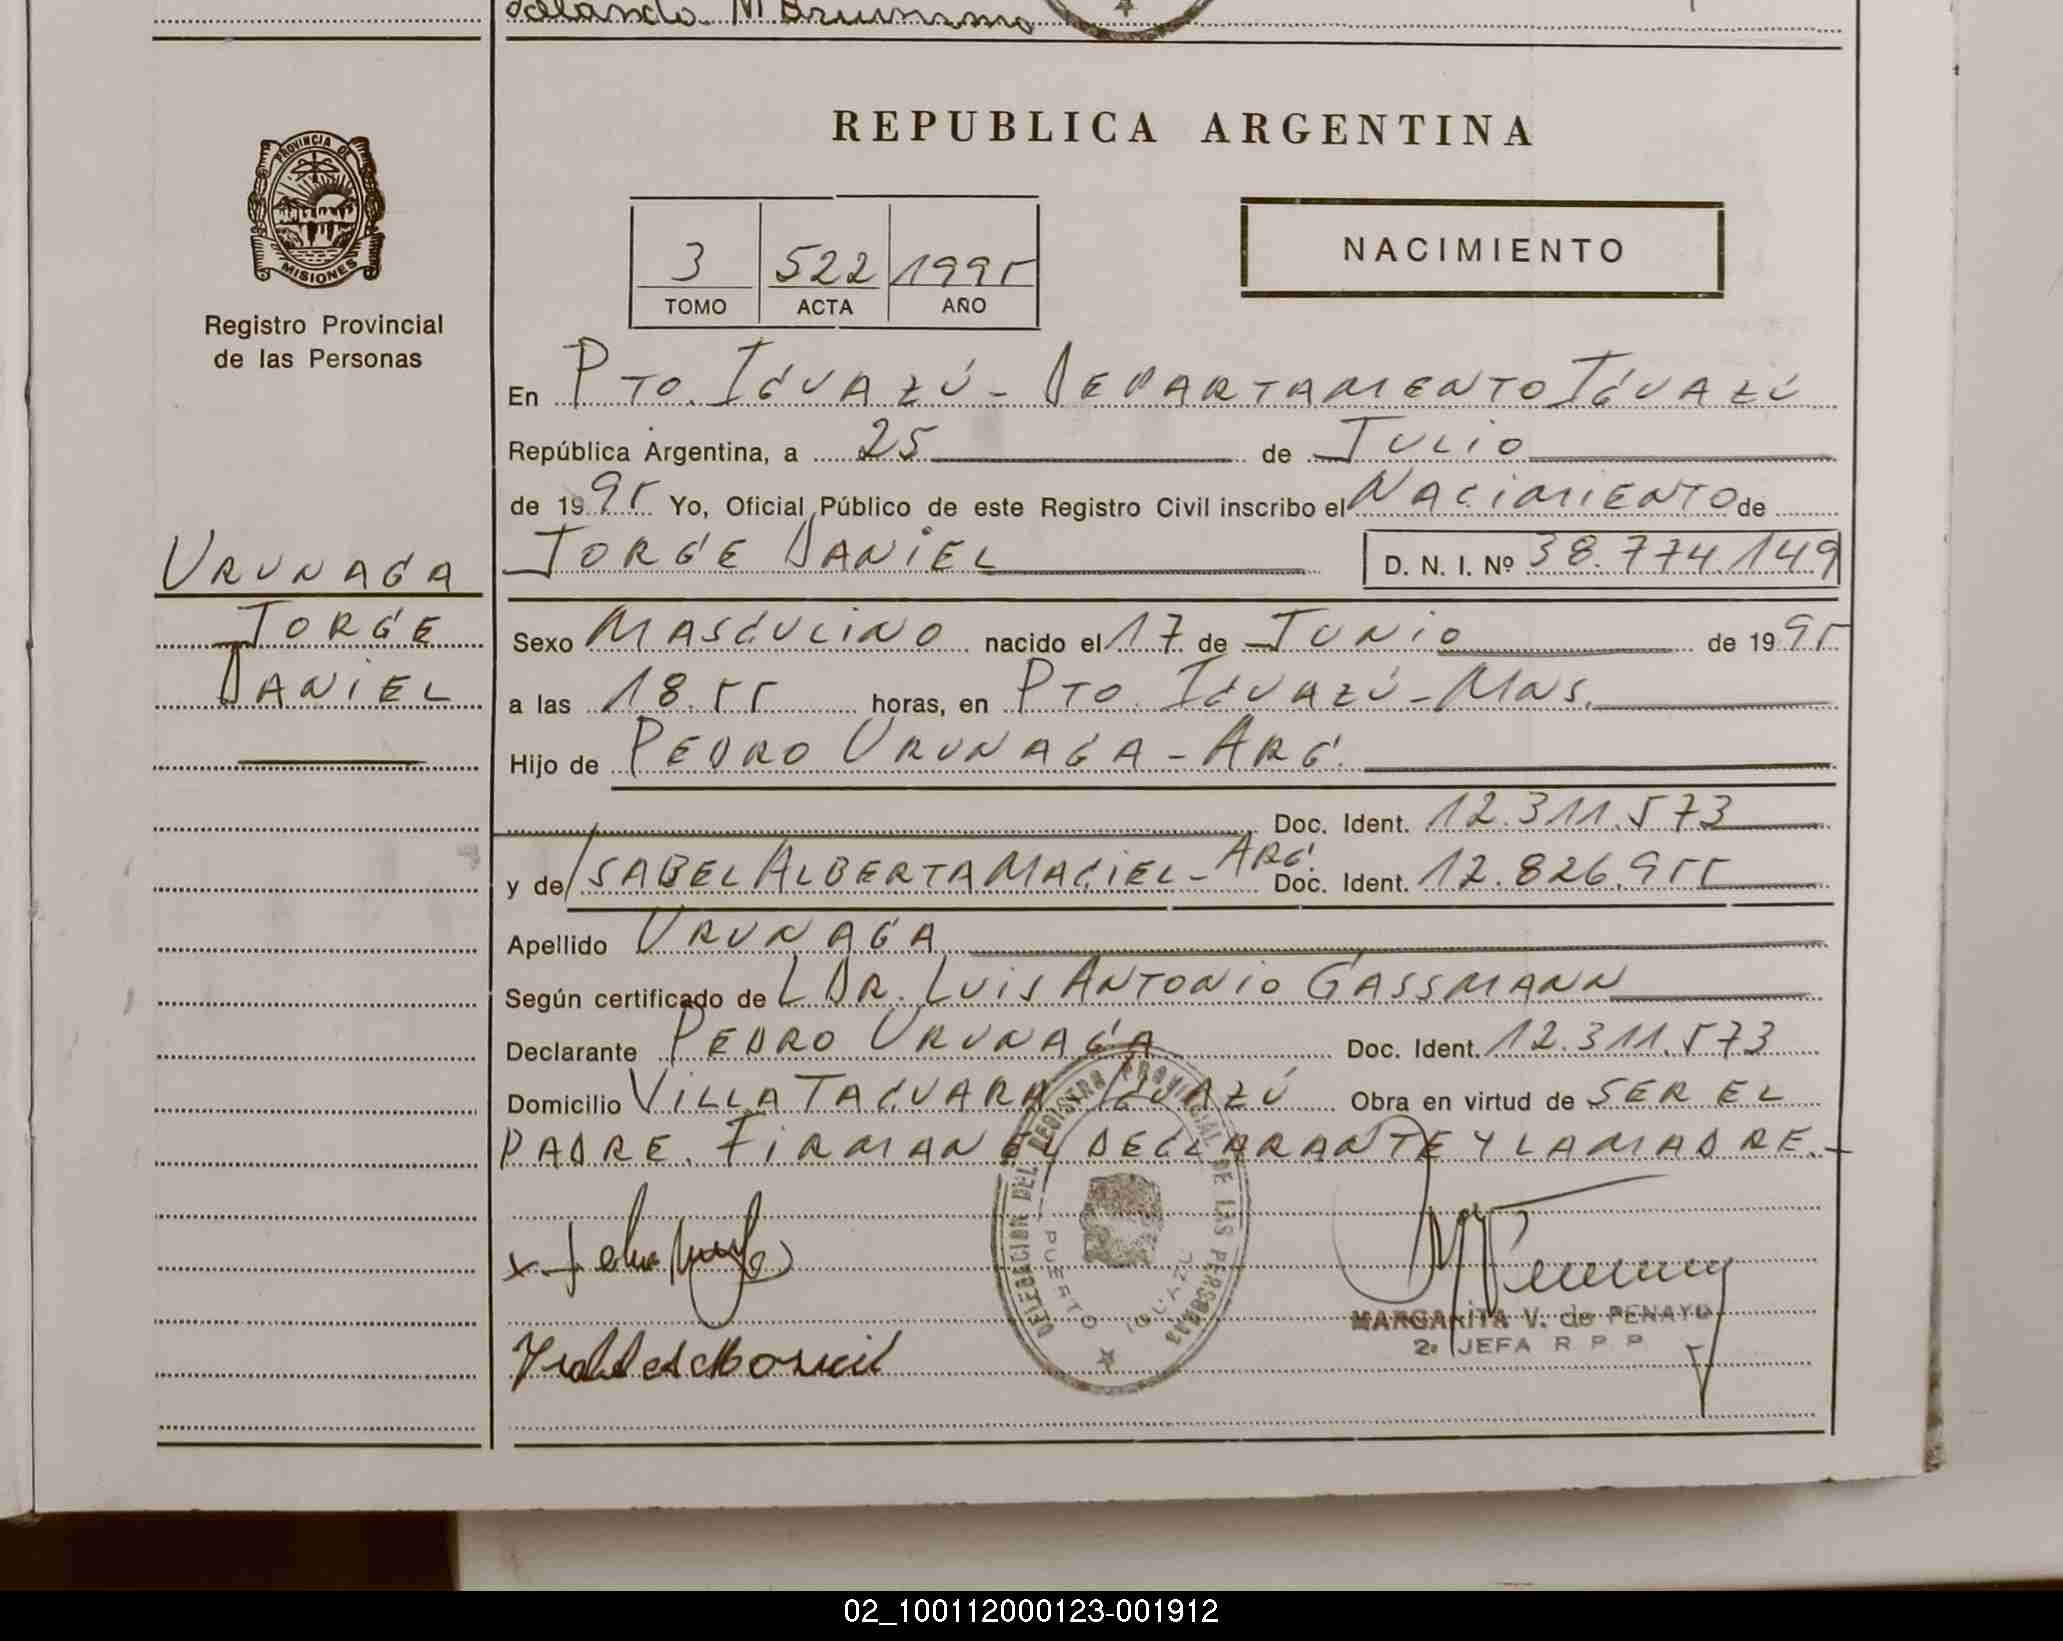 REPUBLICA ARGENTINA
PROVINCIA DE
MISIONES
Registro Provincial
de las Personas
3 522 1995
TOMO ACTA AÑO
NACIMIENTO
En PTO. IGUAZÚ - DEPARTAMENTO IGUAZÚ
República Argentina, a 25 de JULIO
de 1995 Yo, Oficial Público de este Registro Civil inscribo el NACIMIENTO de
JORGE DANIEL D. N. I. Nº 38.774.149
URUNAGA
JORGE
DANIEL
Sexo MASCULINO nacido el 17 de JUNIO de 1995
a las 18.55 horas, en PTO. IGUAZÚ - MNS.
Hijo de PEDRO URUNAGA - ARG.
Doc. Ident. 12.311.573
y de ISABEL ALBERTA MACIEL - ARG. Doc. Ident. 12.826.955
Apellido URUNAGA
Según certificado de L DR. LUIS ANTONIO GASSMANN
Declarante PEDRO URUNAGA Doc. Ident. 12.311.573
Domicilio VILLA TACUARA IGUAZÚ Obra en virtud de SER EL
PADRE. FIRMAN EL DECLARANTE Y LA MADRE.-
DELEGACION DEL REGISTRO PROVINCIAL DE LAS PERSONAS
PUERTO IGUAZU
MARGARITA V. de PENAYO
2ª JEFA R P P
02_100112000123-001912